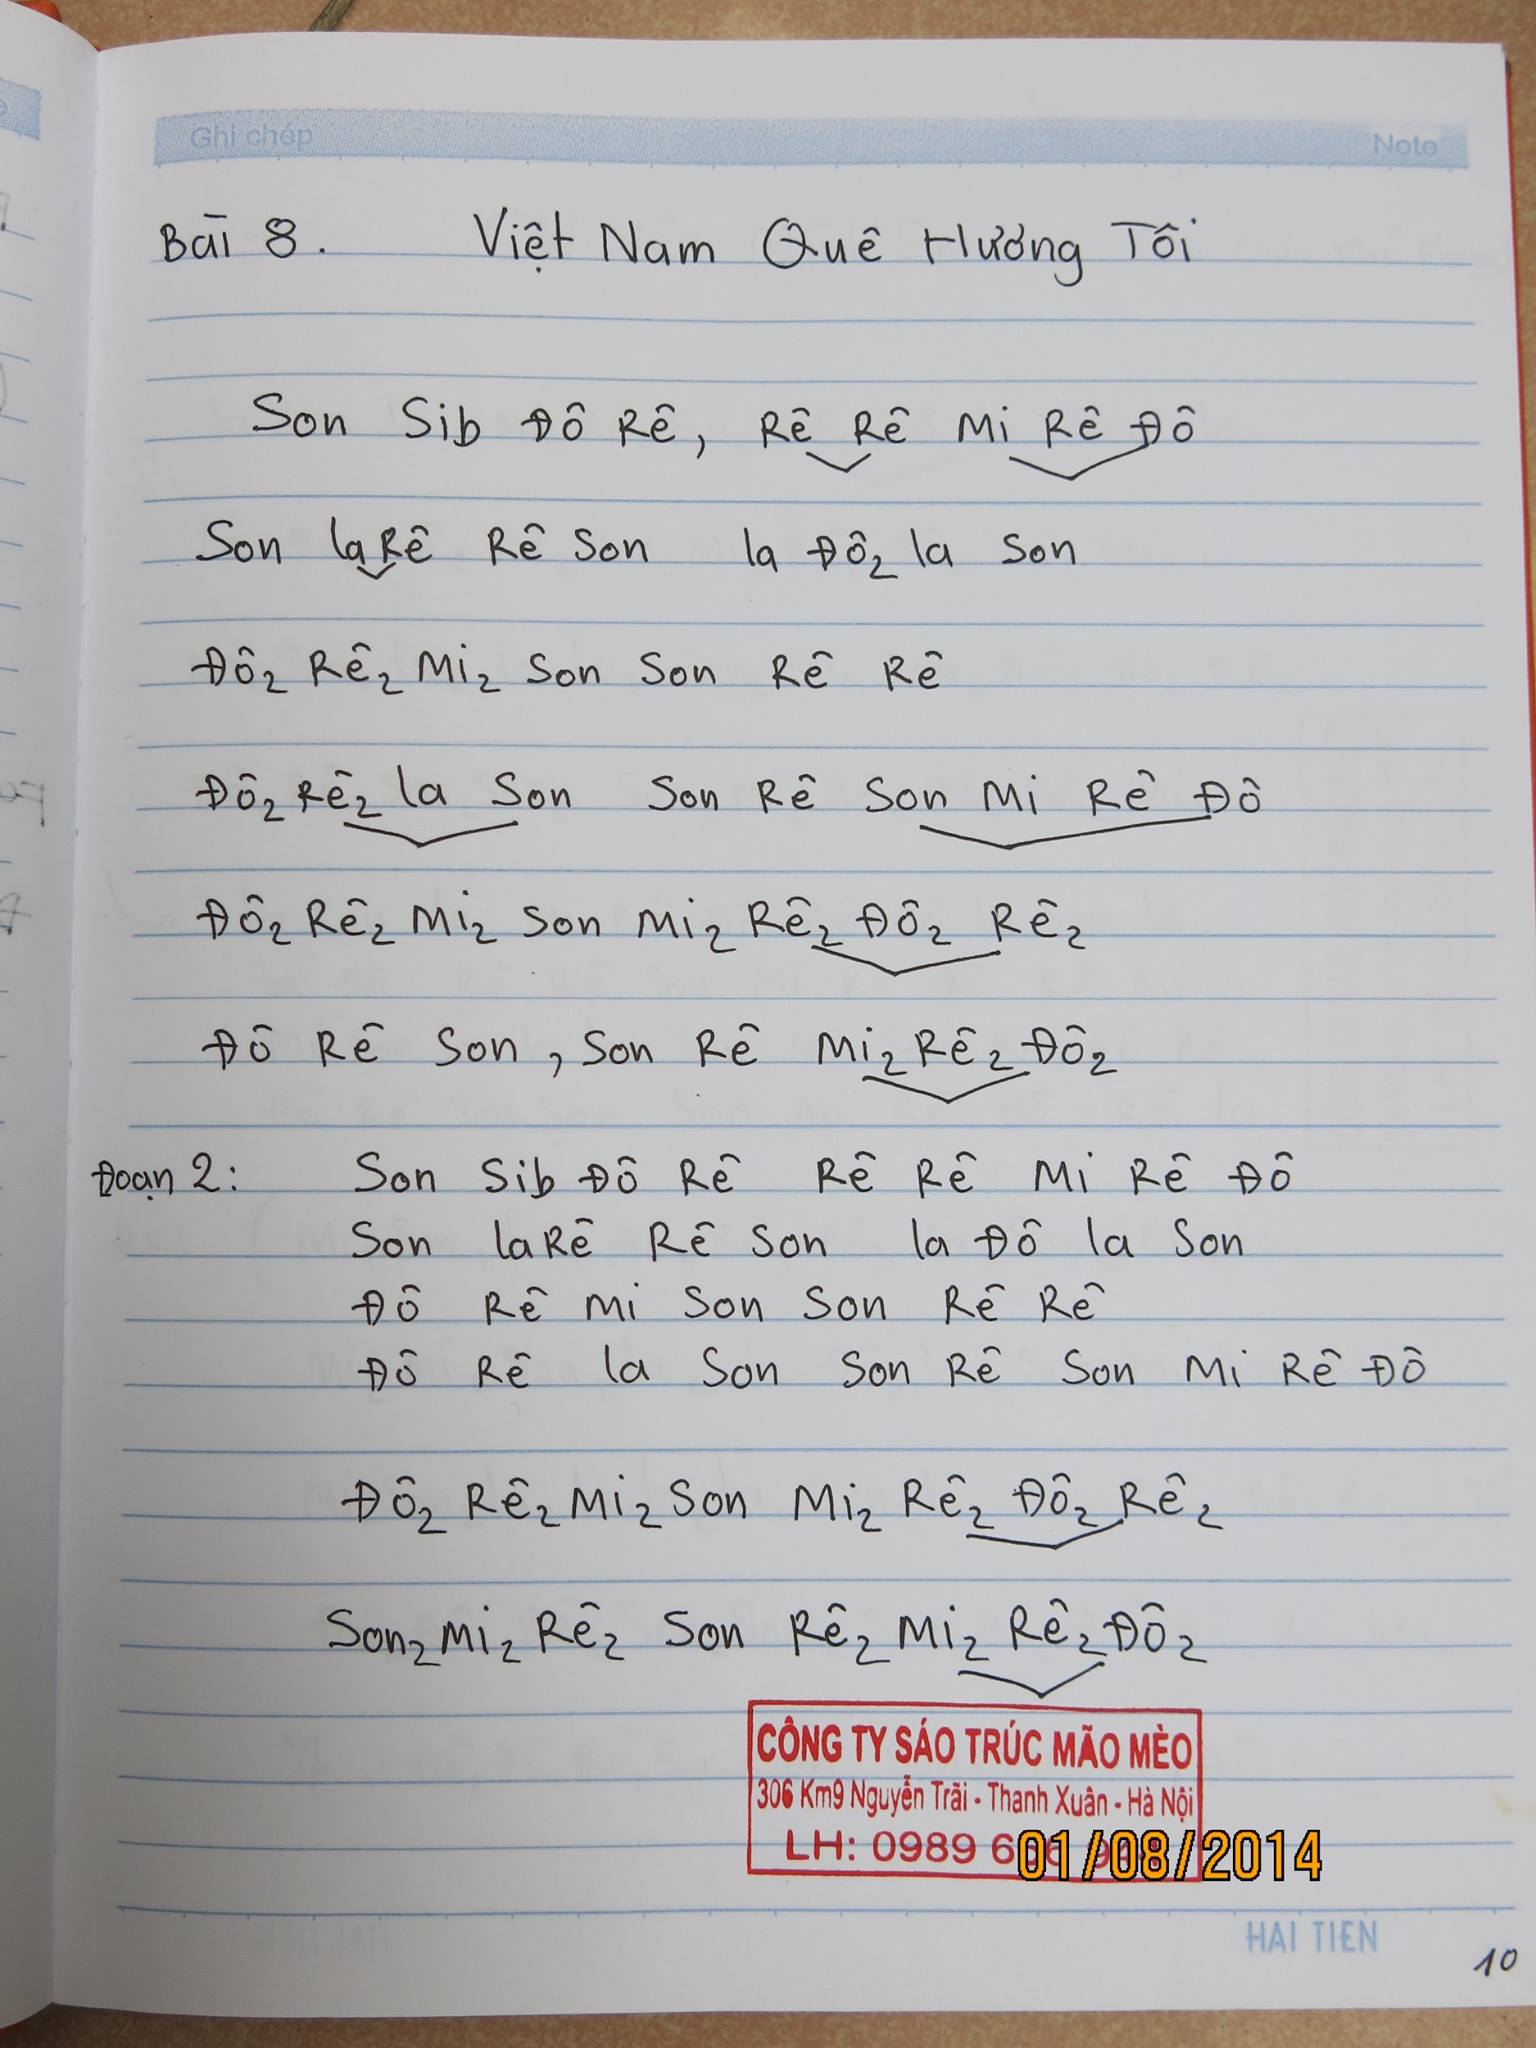 Ghi chép Note
Bài 8. Việt Nam Quê Hương Tôi
Son Sib Đô Rê, Rê Rê Mi Rê Đô
Son la Rê Rê Son la Đô2 la Son
Đô2 Rê2 Mi2 Son Son Rê Rê
Đô2 Rê2 la Son Son Rê Son Mi Rê Đô
Đô2 Rê2 Mi2 Son Mi2 Rê2 Đô2 Rê2
Đô Rê Son, Son Rê Mi2 Rê2 Đô2
Đoạn 2: Son Sib Đô Rê Rê Rê Mi Rê Đô
Son la Rê Rê Son la Đô la Son
Đô Rê Mi Son Son Rê Rê
Đô Rê la Son Son Rê Son Mi Rê Đô
Đô2 Rê2 Mi2 Son Mi2 Rê2 Đô2 Rê2
Son2 Mi2 Rê2 Son Rê2 Mi2 Rê2 Đô2
CÔNG TY SÁO TRÚC MÃO MÈO
306 Km9 Nguyễn Trãi - Thanh Xuân - Hà Nội
LH: 0989
01/08/2014
HAI TIEN
10